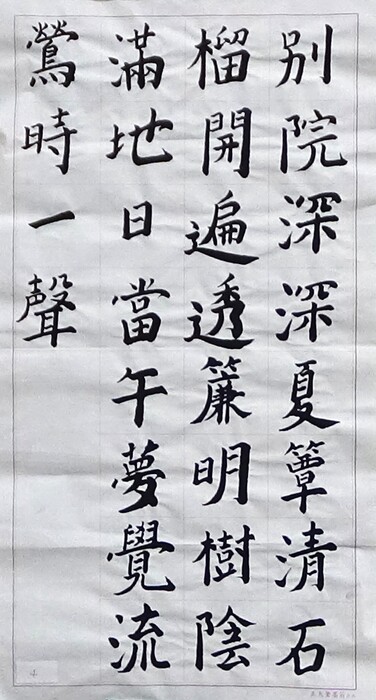 別院深深夏簟清石
榴開遍透簾明樹陰
滿地日當午夢覺流
鶯時一聲
4